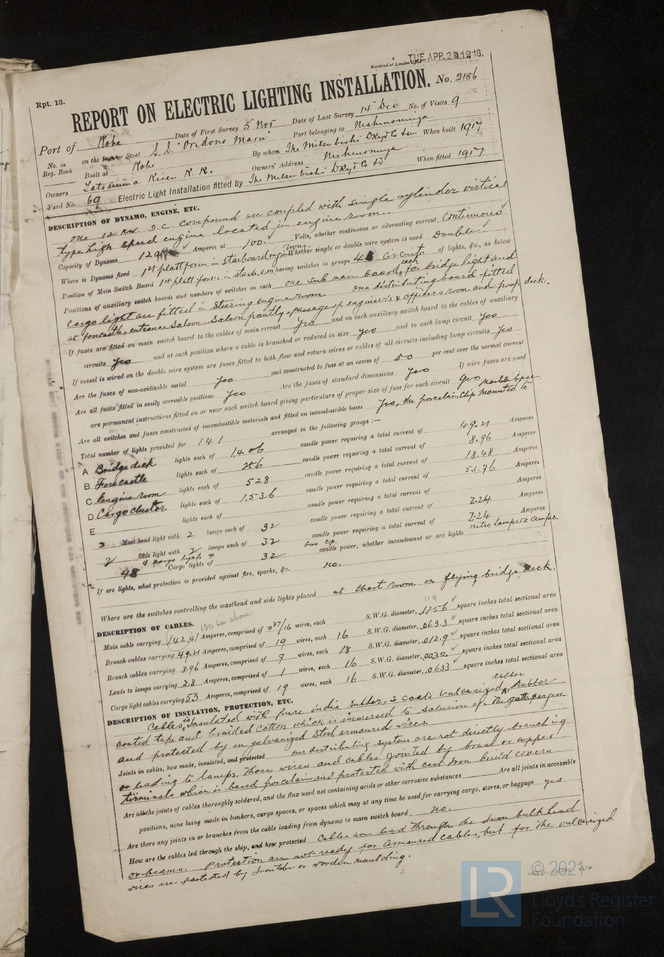 Rpt. 13.
Received at London Office TUE. APR. 23 1918.
REPORT ON ELECTRIC LIGHTING INSTALLATION. No. 2186
Port of Kobe Date of First Survey 5 Nov Date of Last Survey 14 Dec No. of Visits 9
No. in Reg. Book on the Steel S.S. "Oridono Maru" Port belonging to Nishinomiya
Built at Kobe By whom The Mitsubishi When built 1917
Owners Owners' Address Nishinomiya
Yard No. 69 Electric Light Installation fitted by The Mitsubishi When fitted 1917
DESCRIPTION OF DYNAMO, ENGINE, ETC.
One 12 KW D.C. compound coupled with single cylinder vertical
type high speed engine located in engine room.
Capacity of Dynamo 120 Amperes at 100 Volts, whether continuous or alternating current Continuous
Where is Dynamo fixed 1st platform in starboard engine room Whether single or double wire system is used Double
Position of Main Switch Board 1st platform in having switches to groups 4 circuits of lights, &c., as below
Positions of auxiliary switch boards and numbers of switches on each one sub main board for bridge light and
cargo light are fitted in steering engine room one distributing board fitted
at forecastle, entrance saloon, saloon pantry, passage of engineer's & officers room and poop deck.
If fuses are fitted on main switch board to the cables of main circuit Yes and on each auxiliary switch board to the cables of auxiliary
circuits Yes and at each position where a cable is branched or reduced in size yes and to each lamp circuit Yes
If vessel is wired on the double wire system are fuses fitted to both flow and return wires or cables of all circuits including lamp circuits Yes
Are the fuses of non-oxidizable metal Yes and constructed to fuse at an excess of 50 per cent over the normal current
Are all fuses fitted in easily accessible positions Yes Are the fuses of standard dimensions Yes If wire fuses are used
are permanent instructions fitted on or near each switch board giving particulars of proper size of fuse for each circuit Yes
Are all switches and fuses constructed of incombustible materials and fitted on incombustible bases Yes, the porcelain clip mounted to marble base
Total number of lights provided for 141 arranged in the following groups :—
A Bridge deck lights each of 1406 candle power requiring a total current of 49.21 Amperes
B Forecastle lights each of 256 candle power requiring a total current of 8.96 Amperes
C Engine room lights each of 528 candle power requiring a total current of 18.48 Amperes
D Cargo cluster lights each of 1,536 candle power requiring a total current of 53.76 Amperes
E lights each of candle power requiring a total current of Amperes
2 Mast head light with 2 lamps each of 32 candle power requiring a total current of 2.24 Amperes
2 Side light with 2 lamps each of 32 candle power requiring a total current of 2.24 Amperes
48 Cargo lights of 32 candle power, whether incandescent or arc lights nitro lamps 12 lamps.
If arc lights, what protection is provided against fire, sparks, &c. no.
Where are the switches controlling the masthead and side lights placed at Chart room on flying bridge deck.
DESCRIPTION OF CABLES.
Main cable carrying 142.41 Amperes, comprised of 37/16 wires, each S.W.G. diameter, .1256 square inches total sectional area
Branch cables carrying 49.21 Amperes, comprised of 19 wires, each 16 S.W.G. diameter, .0633 square inches total sectional area
Branch cables carrying 8.96 Amperes, comprised of 7 wires, each 18 S.W.G. diameter, .0129 square inches total sectional area
Leads to lamps carrying 2.8 Amperes, comprised of 1 wires, each 16 S.W.G. diameter, .0032 square inches total sectional area
Cargo light cables carrying 53 Amperes, comprised of 19 wires, each 16 S.W.G. diameter, .0633 square inches total sectional area
DESCRIPTION OF INSULATION, PROTECTION, ETC.
Cables insulated with pure india rubber, 2 coats vulcanized rubber
coated tape and braided cotton which is immersed to solution of
and protected by galvanized steel armoured wires
Joints in cables, how made, insulated, and protected on distributing system are not directly branching
or leading to lamps, those wires and cables jointed by brass or copper
terminals which is based porcelain and protected with cast iron covers
Are all the joints of cables thoroughly soldered, and the flux used not containing acids or other corrosive substances Are all joints in accessible
positions, none being made in bunkers, cargo spaces, or spaces which may at any time be used for carrying cargo, stores, or baggage yes
Are there any joints in or branches from the cable leading from dynamo to main switch board no.
How are the cables led through the ship, and how protected Cables are lead through the iron bulkhead
or beams. Protection are not ready for armoured cables, but for the vulcanized
wires is protected by or wooden moulding.
© 2021
LR
Lloyd's Register
Foundation